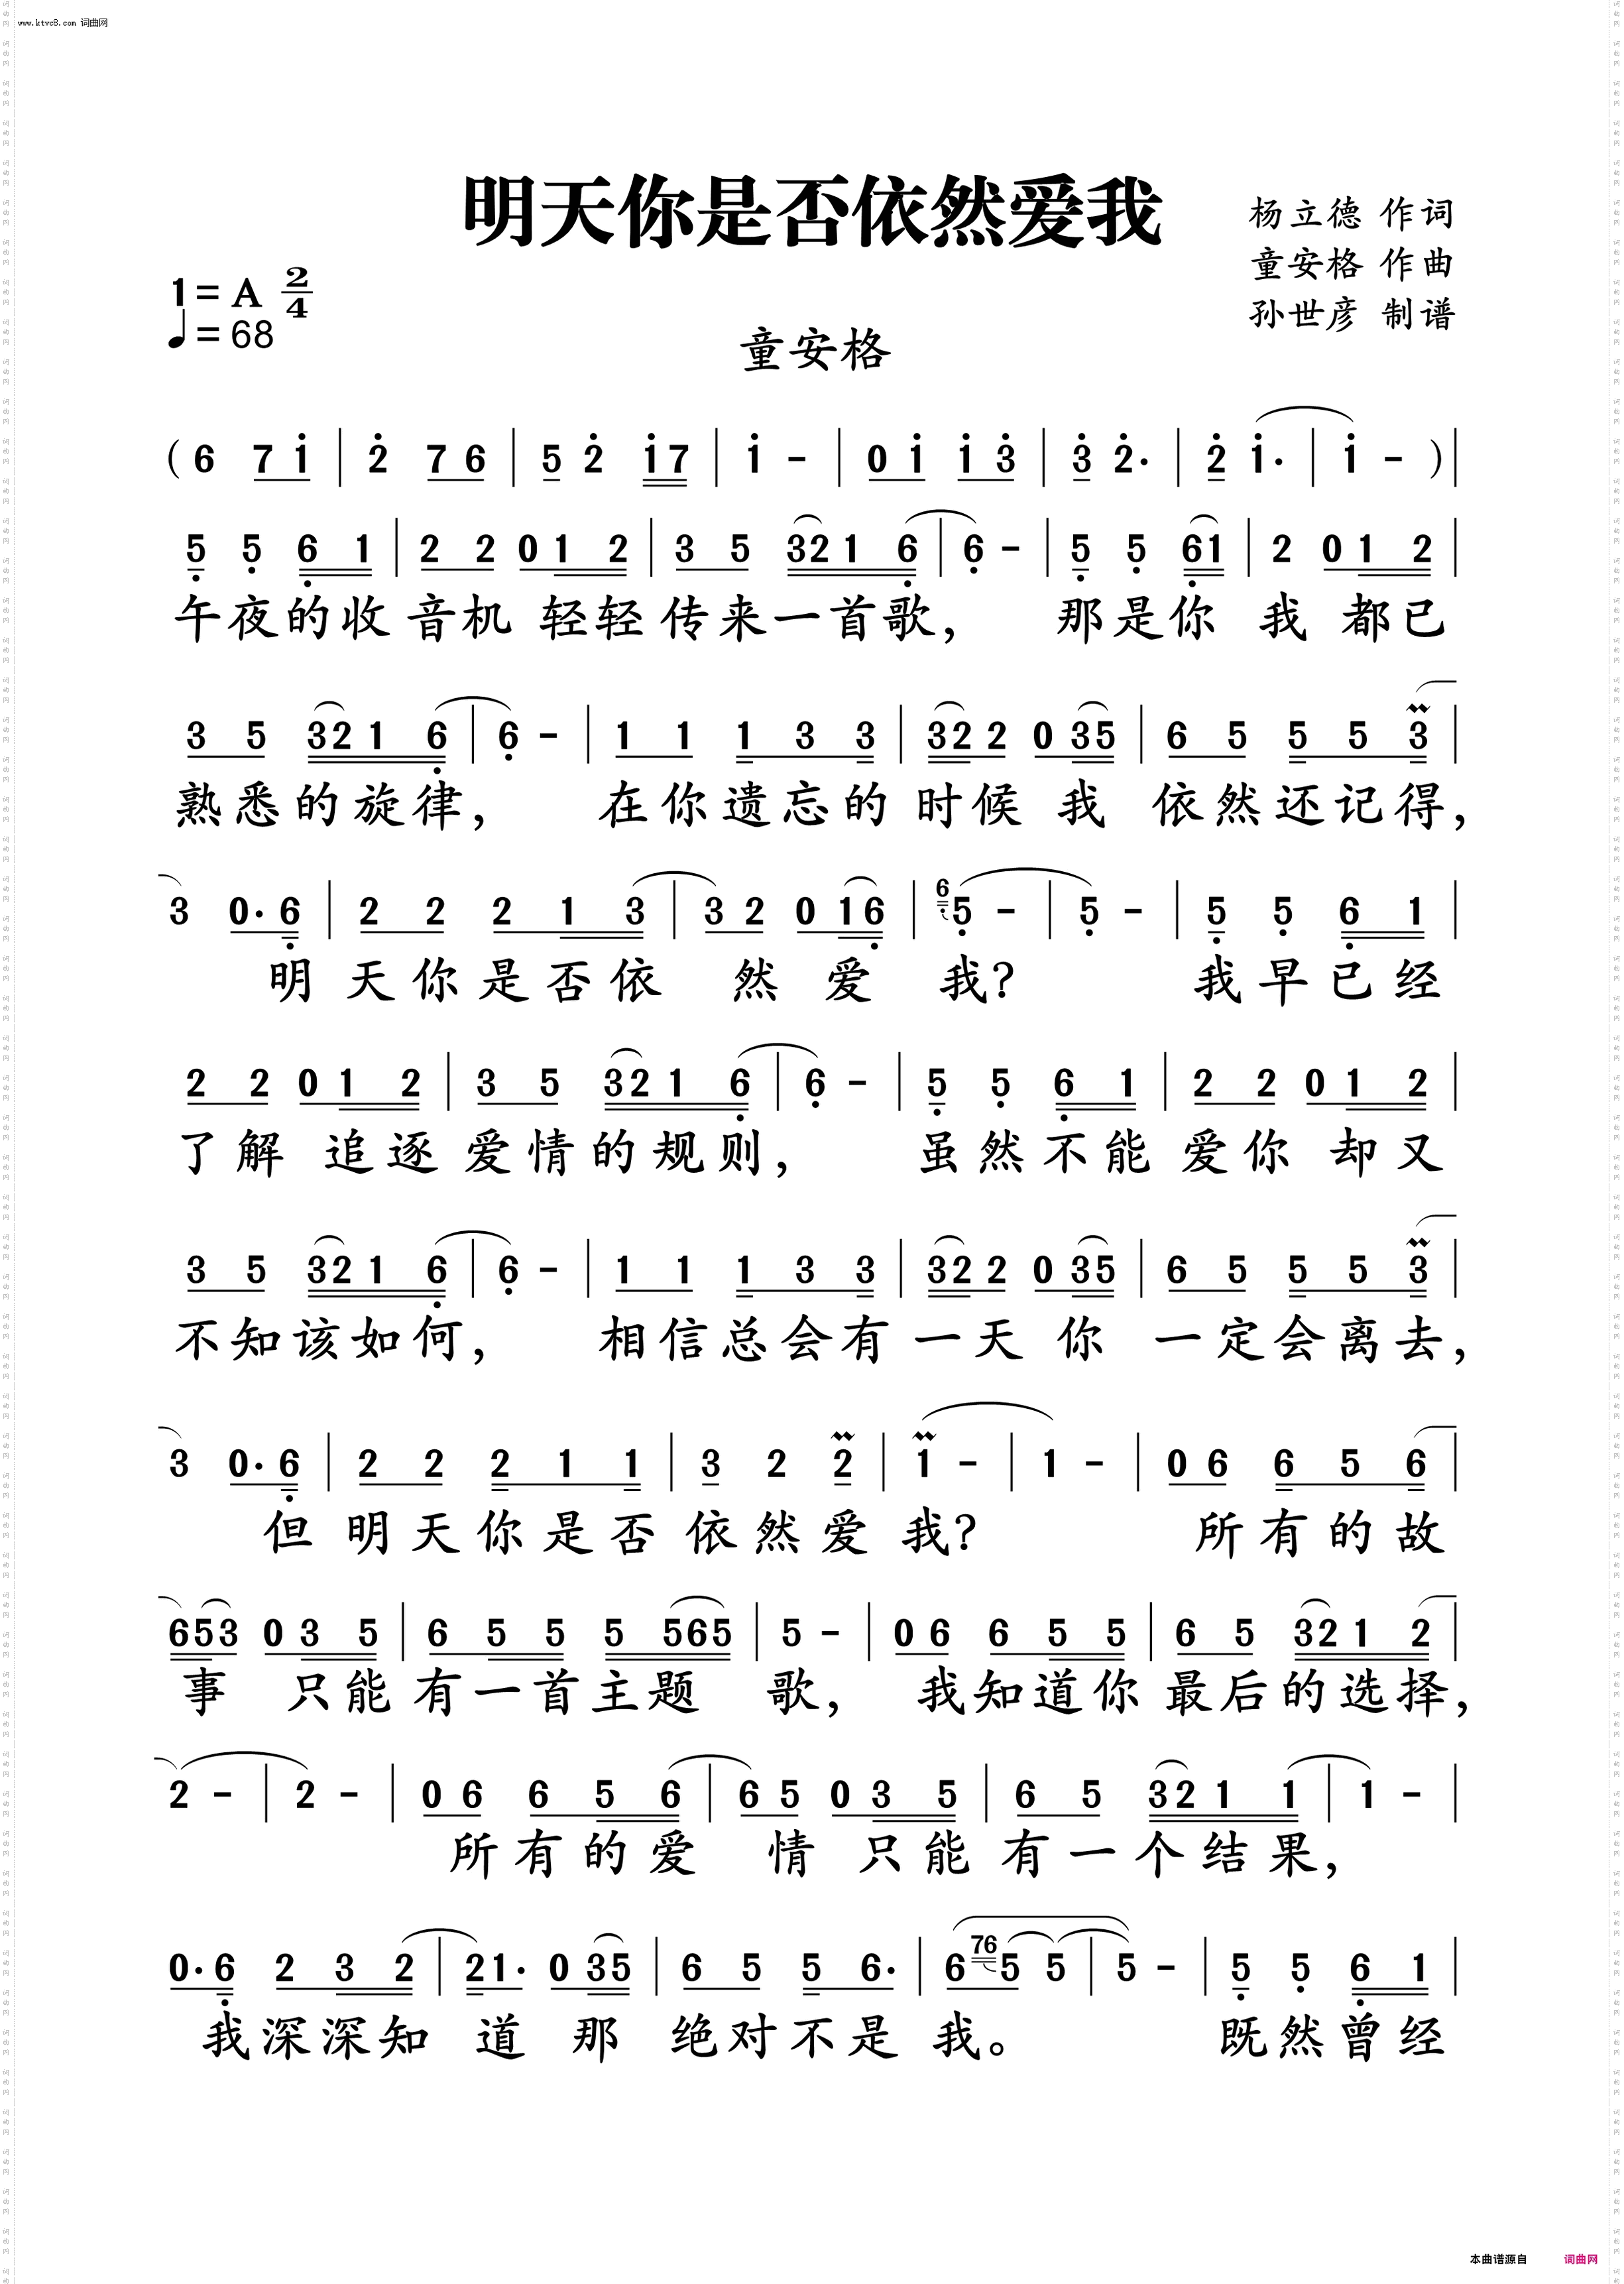 www.ktvc8.com 词曲网
明天你是否依然爱我
杨立德 作词
童安格 作曲
孙世彦 制谱
1= A 2/4
♩= 68
童安格
( 6 7 1̇ | 2̇ 7 6 | 5 2̇ 1̇ 7 | 1̇ - | 0 1̇ 1̇ 3̇ | 3̇ 2̇· | 2̇ 1̇· | 1̇ - ) |
5̣ 5̣ 6̣ 1 | 2 2 0 1 2 | 3 5 3 2 1 6̣ | 6̣ - | 5̣ 5̣ 6̣ 1 | 2 0 1 2 |
午夜的收 音机 轻轻 传来一首歌, 那是你 我 都已
3 5 3 2 1 6̣ | 6̣ - | 1 1 1 3 3 | 3 2 2 0 3 5 | 6 5 5 5 3 |
熟悉的旋律, 在你遗忘的 时候 我 依然还记得,
3 0· 6̣ | 2 2 2 1 3 | 3 2 0 1 6̣ | 6̣ 5̣ - | 5̣ - | 5̣ 5̣ 6̣ 1 |
明 天你是否依 然 爱 我? 我早已经
2 2 0 1 2 | 3 5 3 2 1 6̣ | 6̣ - | 5̣ 5̣ 6̣ 1 | 2 2 0 1 2 |
了解 追逐 爱情的规则, 虽然不能 爱你 却又
3 5 3 2 1 6̣ | 6̣ - | 1 1 1 3 3 | 3 2 2 0 3 5 | 6 5 5 5 3 |
不知该如何, 相信总会有 一天 你 一定会离去,
3 0· 6̣ | 2 2 2 1 1 | 3 2 2 | 1 - | 1 - | 0 6 6 5 6 |
但 明天你是否 依然爱 我? 所有的故
6 5 3 0 3 5 | 6 5 5 5 5 6 5 | 5 - | 0 6 6 5 5 | 6 5 3 2 1 2 |
事 只能 有一首主题 歌, 我知道你 最后的选择,
2 - | 2 - | 0 6 6 5 6 | 6 5 0 3 5 | 6 5 3 2 1 1 | 1 - |
所有的爱 情 只能 有一个结果,
0· 6̣ 2 3 2 | 2 1· 0 3 5 | 6 5 5 6· | 6 76 5 5 | 5 - | 5̣ 5̣ 6̣ 1 |
我深深知 道 那 绝对不是 我。 既然曾经
本曲谱源自 词曲网